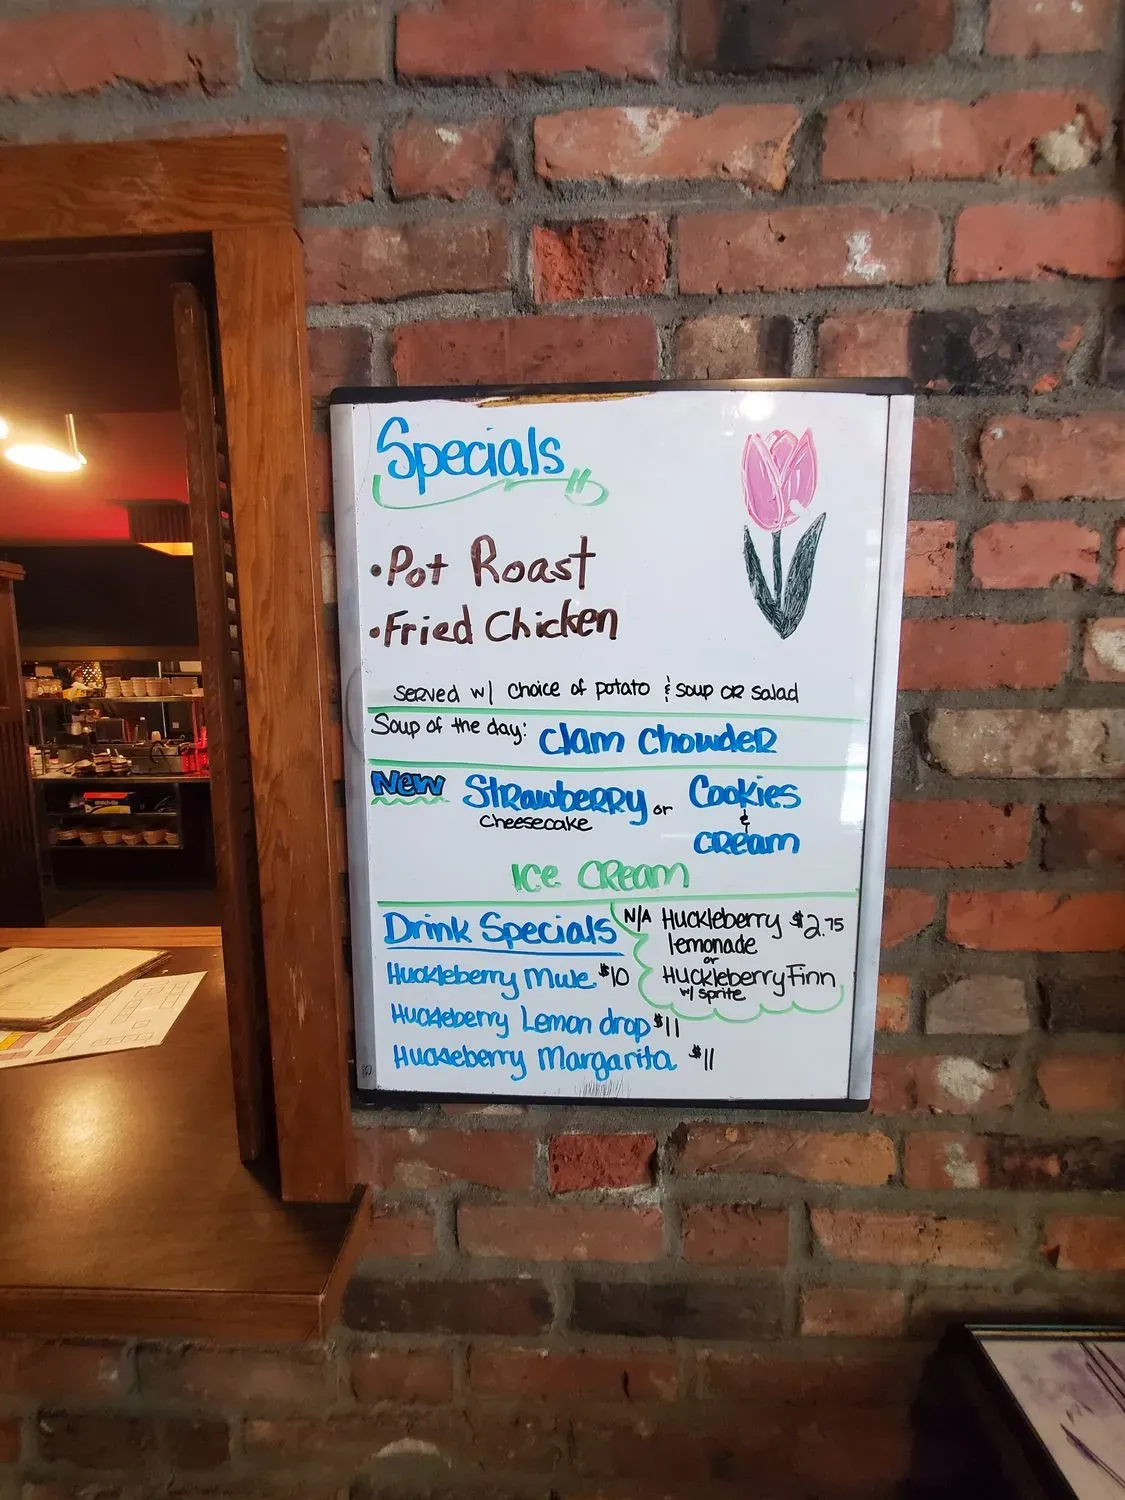 Specials
• Pot Roast
• Fried Chicken
served w/ choice of potato & soup or salad
Soup of the day: Clam Chowder
New Strawberry or Cookies
Cheesecake &
Cream
Ice Cream
Drink Specials
Huckleberry Mule $10
Huckleberry Lemon drop $11
Huckleberry Margarita $11
N/A Huckleberry $2.75
lemonade
or
Huckleberry Finn
w/ sprite